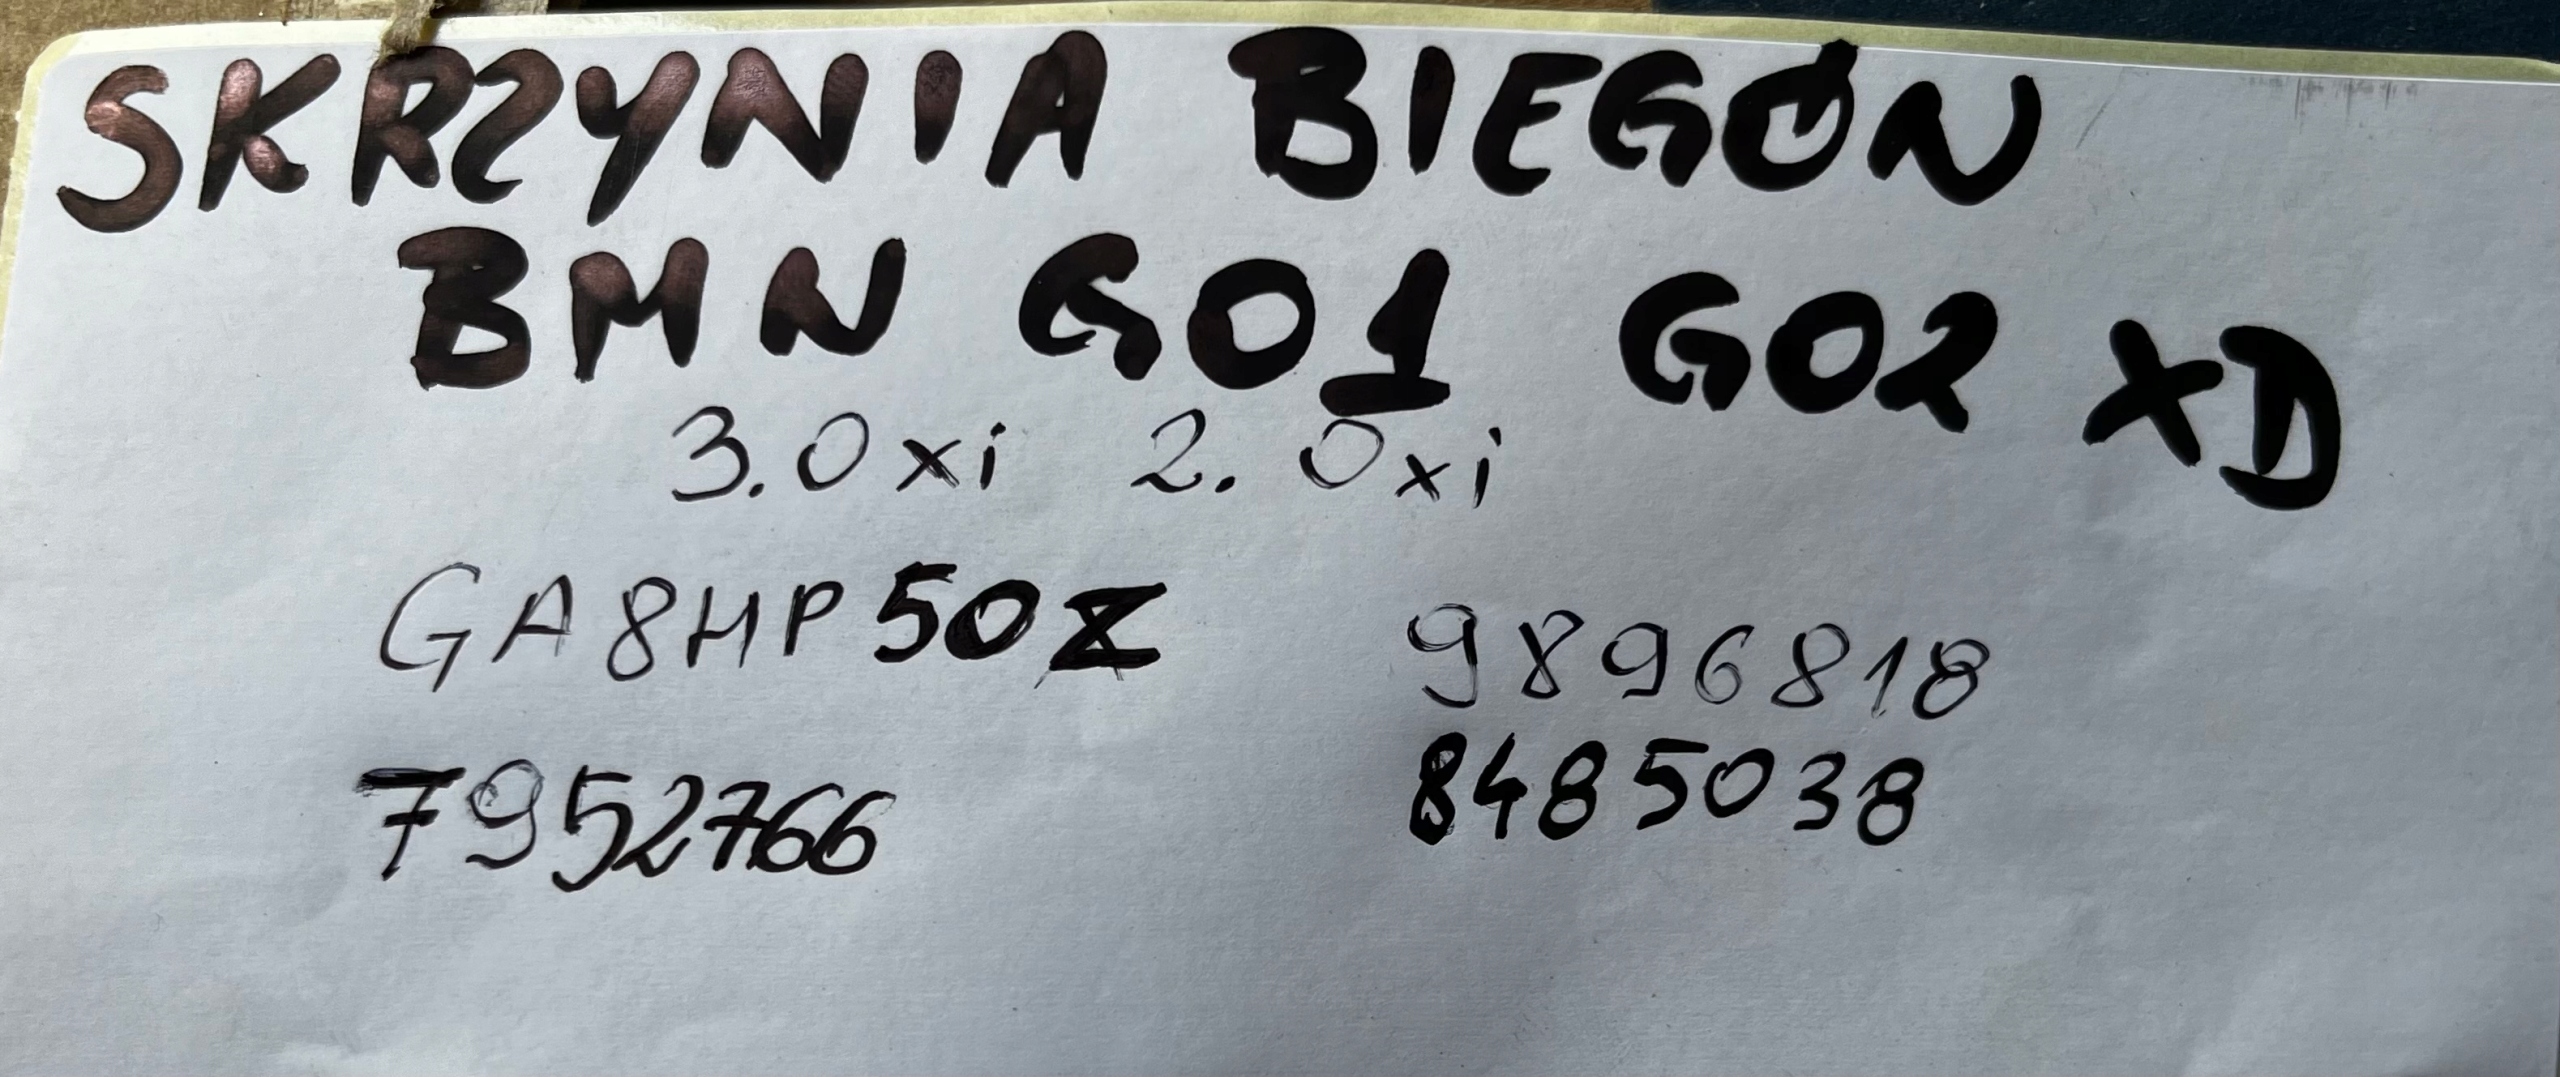 SKRZYNIA BIEGÓW
BMW G01 G02 XD
3.0xi 2.0xi
GA8HP50Z 9896818
7952766 8485038